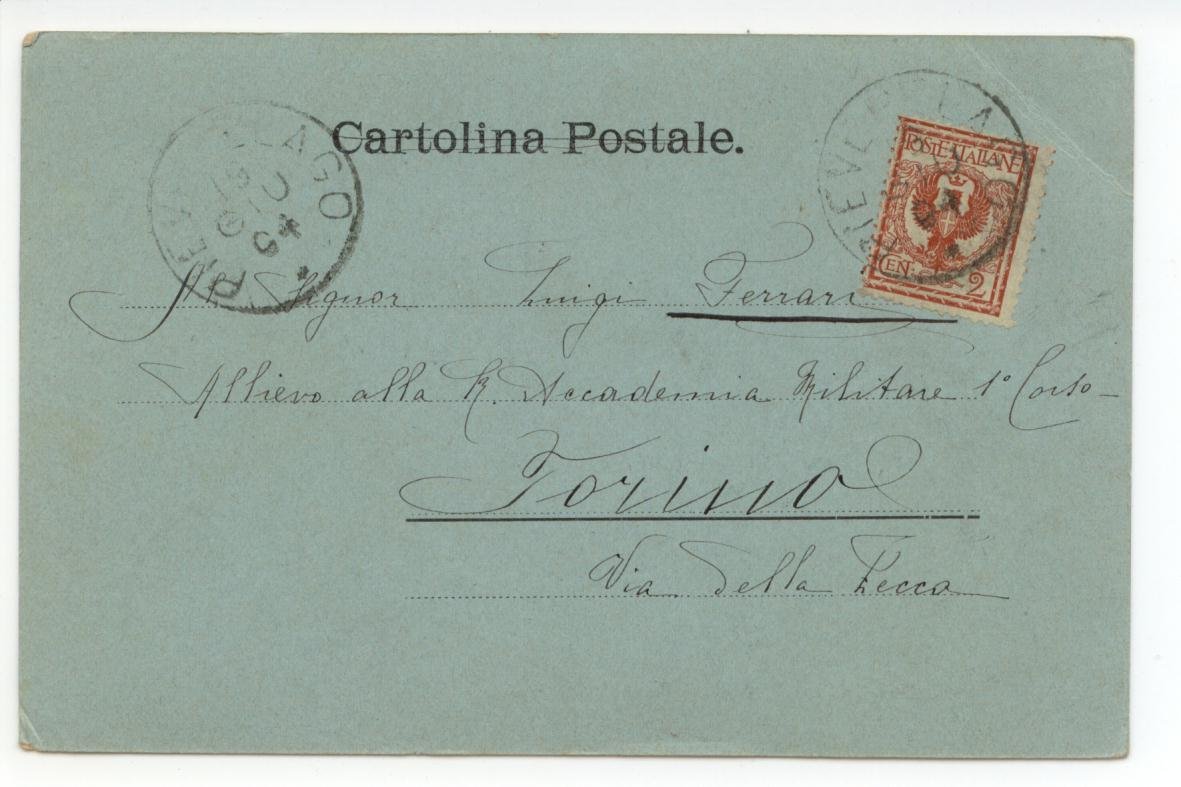 Cartolina Postale.
POSTE ITALIANE
CEN: 2
Al Signor Luigi Ferrari
Allievo alla R. Accademia Militare 1° Corso
Torino
Via della Zecca